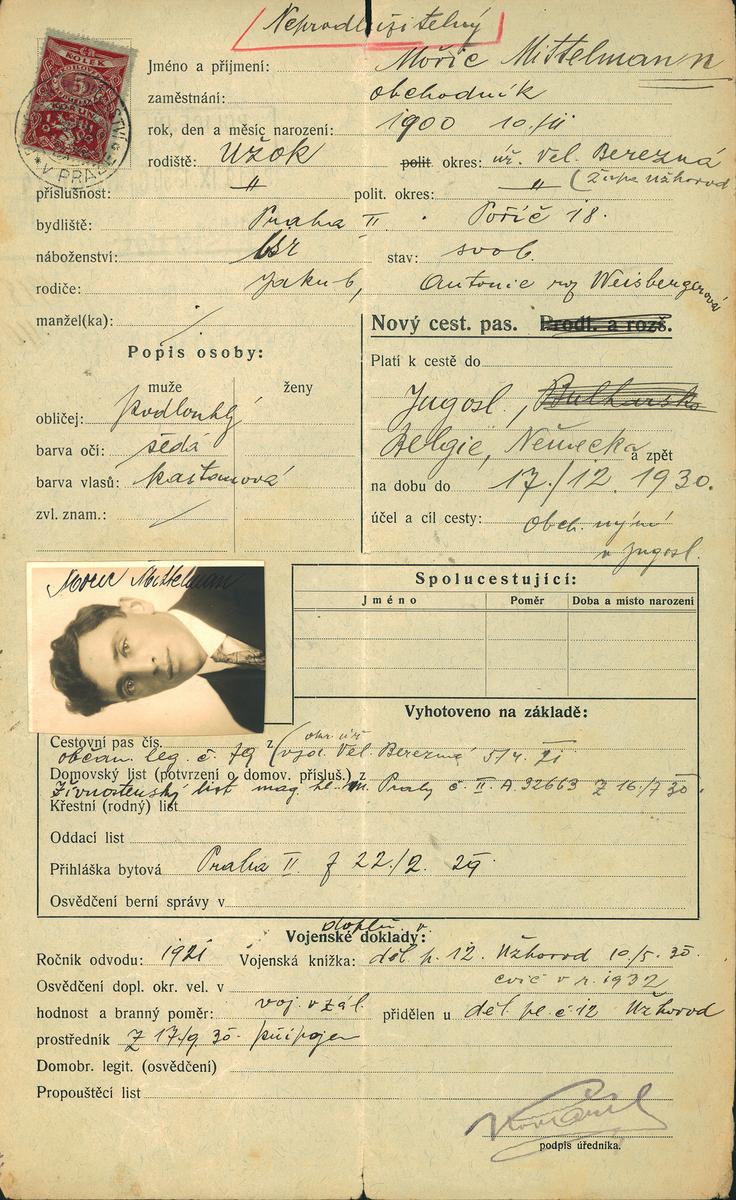 Neprodlužitelný
Jméno a příjmení: Mořic Mittelmann
zaměstnání: obchodník
rok, den a měsíc narození: 1900 10./III
rodiště: Užok polit. okres: úř. Vel. Berezná
(župa Užhorod
příslušnost: " polit. okres: "
bydliště: Praha II. Poříč 18.
náboženství: stav: svob.
rodiče: Jakub, Antonie roz Weisbergerová
manžel(ka):
Nový cest. pas. Prodl. a rozš.
Popis osoby:
Platí k cestě do
muže ženy
Jugosl., Bulharsko
obličej: podlouhlý
Belgie, Německa a zpět
barva očí: šedá
barva vlasů: kaštanová
na dobu do 17./12. 1930.
zvl. znam.:
účel a cíl cesty: obch.
v Jugosl.
Moric Mittelman
Spolucestující:
Jméno Poměr Doba a místo narození
Vyhotoveno na základě:
okr. úř.
Cestovní pas čís. z
občan. leg. č. 79 (vyd. Vel. Berezná 5/4. 21
Domovský list (potvrzení o domov. přísluš.) z
Živnostenský list mag. hl. m. Prahy č. II. A. 32663 z 16./7 30.
Křestní (rodný) list
Oddací list
Přihláška bytová Praha II. z 22./2. 29.
Osvědčení berní správy v
doplň. v.
Vojenské doklady:
Ročník odvodu: 1921 Vojenská knížka: děl. p. 12. Užhorod 10/5. 30.
Osvědčení dopl. okr. vel. v cvič v r. 1932
hodnost a branný poměr: voj. v zál. přidělen u děl. pl. č. 12 Užhorod
prostředník z 17./9. 30. připojen
Domobr. legit. (osvědčení)
Propouštěcí list
podpis úředníka.